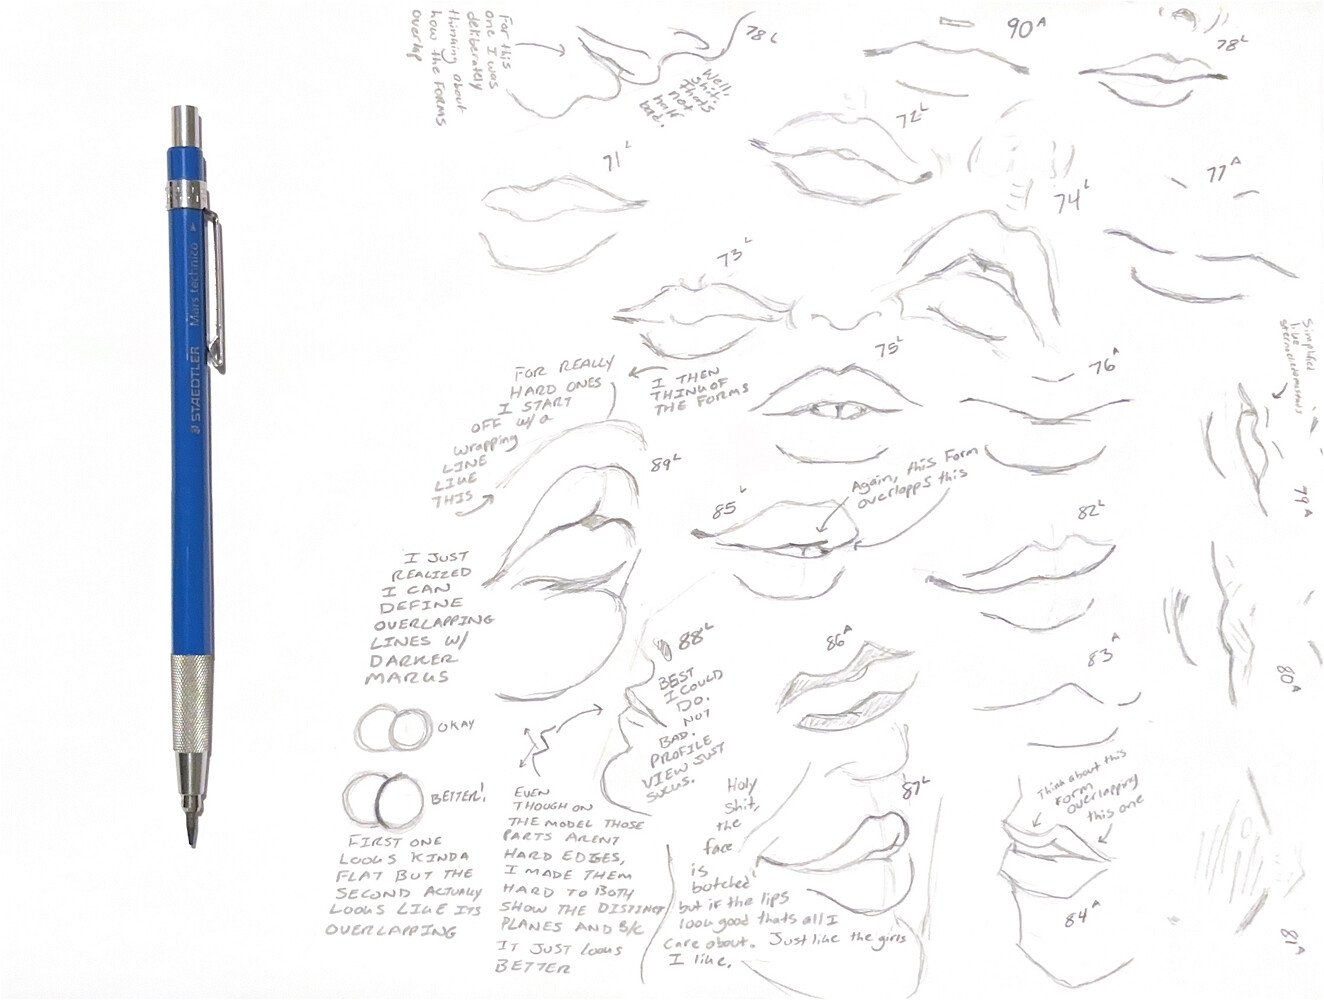 For this
one I was
deliberately
thinking about
how the FORMS
overlap
78 L
Well,
shit.
thats
not
half
bad.
90 A
78 L
71 L
72 L
74 L
77 A
73 L
STAEDTLER Mars technico
75 L
76 A
FOR REALLY
HARD ONES
I START
OFF w/ a
wrapping
LINE
LIKE
THIS
I THEN
THINK OF
THE FORMS
Simplified
like
sternocleidomastoids
79 A
89 L
85 L
Again, this Form
overlapps this
82 L
I JUST
REALIZED
I CAN
DEFINE
OVERLAPPING
LINES W/
DARKER
MARKS
88 L
BEST
I COULD
DO.
NOT
BAD.
PROFILE
VIEW JUST
SUCKS.
86 A
83 A
80 A
OKAY
BETTER!
FIRST ONE
LOOKS KINDA
FLAT BUT THE
SECOND ACTUALLY
LOOKS LIKE ITS
OVERLAPPING
EVEN
THOUGH ON
THE MODEL THOSE
PARTS ARENT
HARD EDGES,
I MADE THEM
HARD TO BOTH
SHOW THE DISTINCT
PLANES AND B/C
IT JUST LOOKS
BETTER
Holy
shit,
the
face
is
botched
but if the lips
look good thats all I
care about. Just like the girls
I like.
87 L
Think about this
Form
overlapping
this one
84 A
81 A